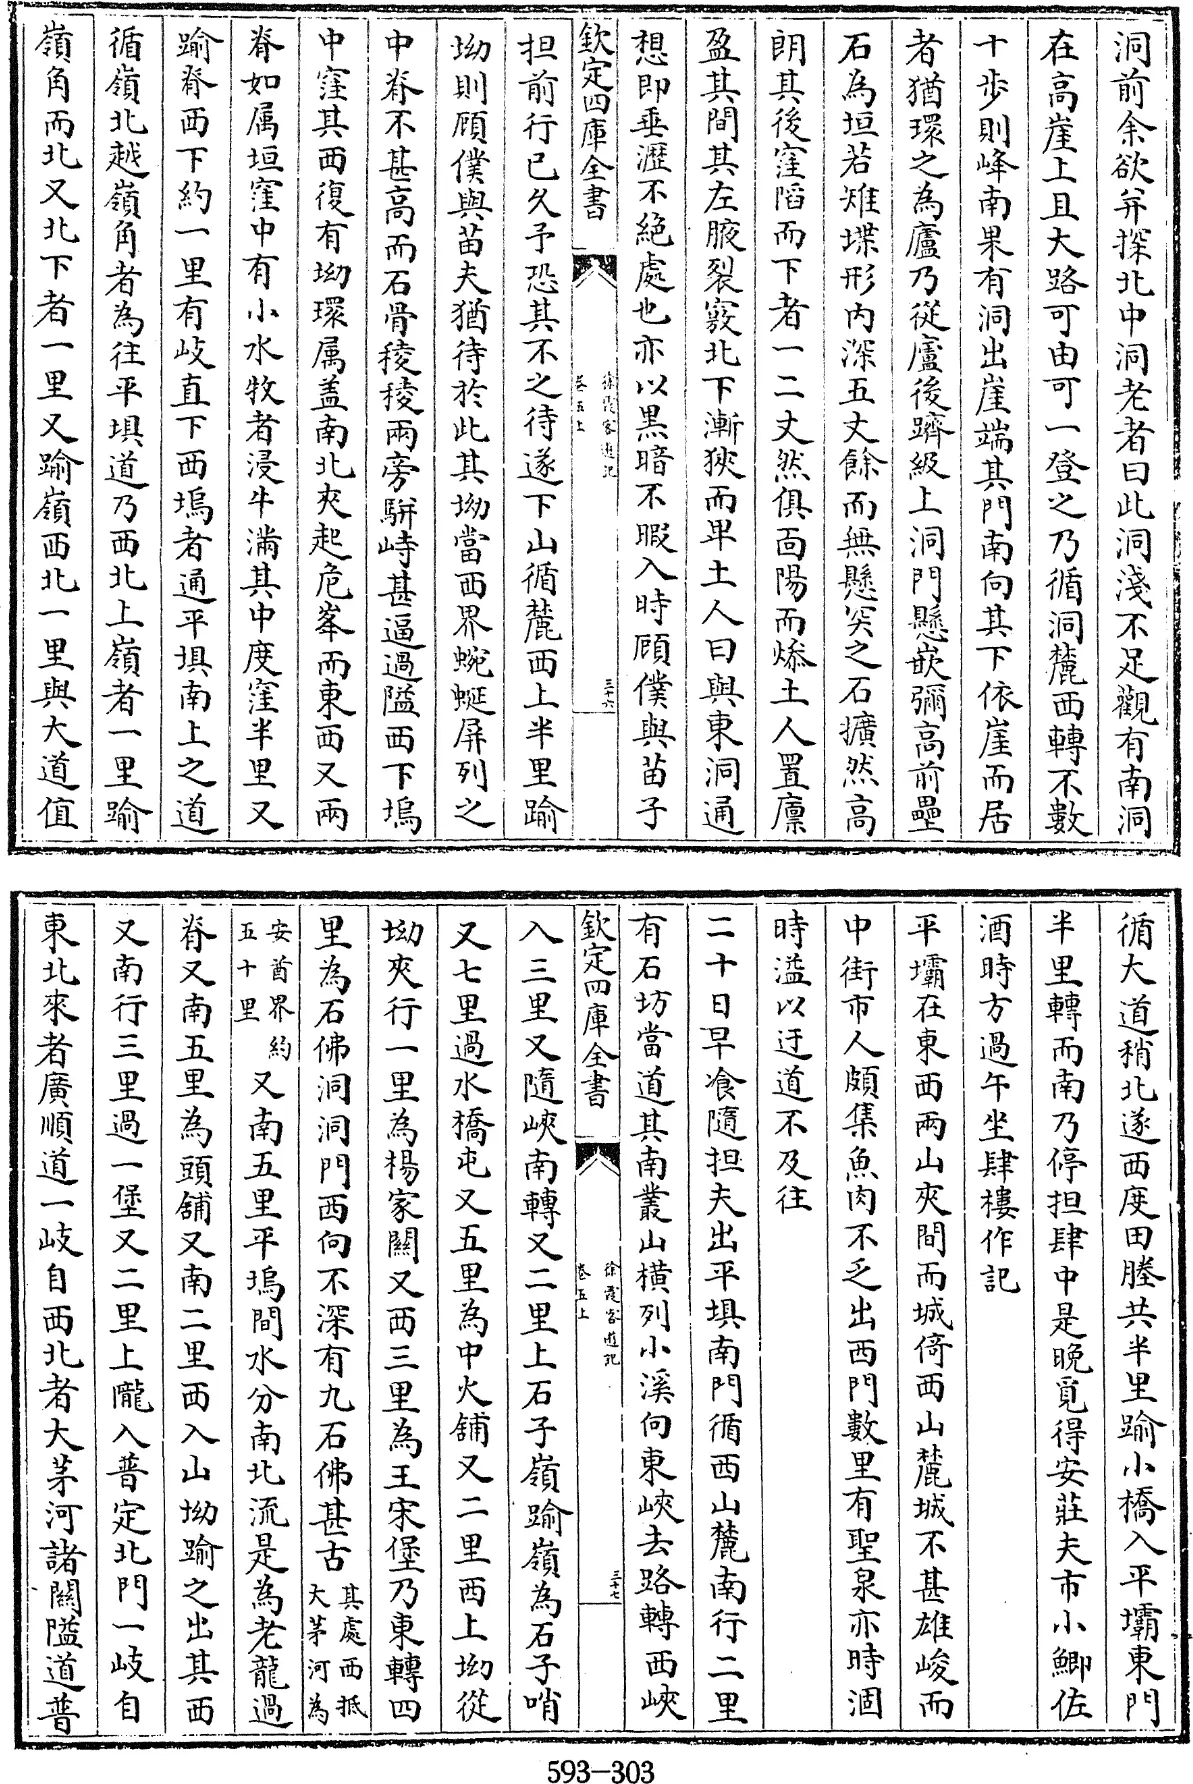 洞前余欲弁探北中洞老者曰此洞淺不足觀有南洞
在高崖上且大路可由可一登之乃循洞麓西轉不數
十步則峰南果有洞出崖端其門南向其下依崖而居
者猶環之為廬乃從廬後躋級上洞門懸嵌彌高前壘
石為垣若雉堞形内深五丈餘而無懸突之石擴然高
朗其後窪陷而下者一二丈然俱面陽而燥土人置廩
盈其間其左腋裂竅北下漸狹而卑土人曰與東洞通
想即垂瀝不絕處也亦以黑暗不暇入時顧僕與苗子
欽定四庫全書
徐霞客遊記
卷五上
三十六
担前行已久予恐其不之待遂下山循麓西上半里踰
坳則顧僕與苗夫猶待於此其坳當西界蜿蜒屏列之
中脊不甚高而石骨稜稜兩旁駢峙甚逼過隘西下塢
中窪其西復有坳環属盖南北夾起危峯而東西又兩
脊如属垣窪中有小水牧者浸牛滿其中度窪半里又
踰脊西下約一里有岐直下西塢者通平垻南上之道
循嶺北越嶺角者為往平垻道乃西北上嶺者一里踰
嶺角而北又北下者一里又踰嶺西北一里與大道值
循大道稍北遂西度田塍共半里踰小橋入平壩東門
半里轉而南乃停担肆中是晚覓得安莊夫市小鯽佐
酒時方過午坐肆樓作記
平壩在東西兩山夾間而城倚西山麓城不甚雄峻而
中街市人頗集魚肉不乏出西門數里有聖泉亦時涸
時溢以迂道不及往
二十日早飡隨担夫出平垻南門循西山麓南行二里
有石坊當道其南叢山橫列小溪向東峽去路轉西峽
欽定四庫全書
徐霞客遊記
卷五上
三十七
入三里又隨峽南轉又二里上石子嶺踰嶺為石子哨
又七里過水橋屯又五里為中火舖又二里西上坳從
坳夾行一里為楊家關又西三里為王宋堡乃東轉四
里為石佛洞洞門西向不深有九石佛甚古其處西抵大茅河為
安酋界約五十里又南五里平塢間水分南北流是為老龍過
脊又南五里為頭舖又南二里西入山坳踰之出其西
又南行三里過一堡又二里上隴入普定北門一岐自
東北來者廣順道一岐自西北者大茅河諸關隘道普
593-303